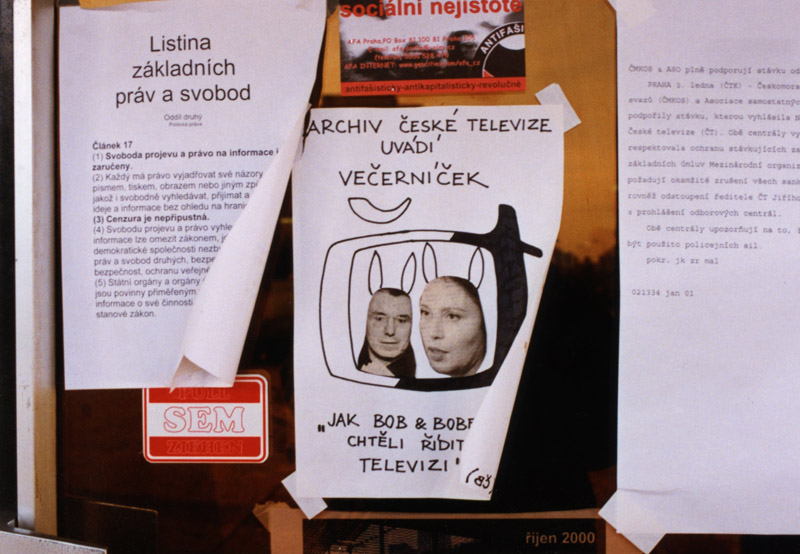 Listina
základních
práv a svobod
Oddíl druhý
Politická práva
Článek 17
(1) Svoboda projevu a právo na informace
zaručeny.
(2) Každý má právo vyjadřovat své názory
písmem, tiskem, obrazem nebo jiným
jakož i svobodně vyhledávat, přijímat a
ideje a informace bez ohledu na
(3) Cenzura je nepřípustná.
(4) Svobodu projevu a právo
informace lze omezit zákonem,
demokratické společnosti
práv a svobod druhých,
bezpečnost, ochranu
(5) Státní orgány a orgány
jsou povinny přiměřeným
informace o své činnosti
stanové zákon.
SEM
sociální nejistotě
AFA Praha, PO Box 81, 100 81 Praha
ANTIFAŠI
antifašisticky-antikapitalisticky-revolučně
ARCHIV ČESKÉ TELEVIZE
UVÁDÍ
VEČERNÍČEK
„JAK BOB &
CHTĚLI ŘÍDIT
TELEVIZI"
říjen 2000
ČMKOS a ASO plně podporují stávku
PRAHA 2. ledna (ČTK) -
svazů (ČMKOS) a Asociace
podpořily stávku, kterou vyhlásila
České televize (ČT). Obě centrály
respektovala ochranu stávkujících
základních úmluv Mezinárodní
požadují okamžité zrušení všech
rovněž odstoupení ředitele ČT
z prohlášení odborových centrál.
Obě centrály upozorňují na to,
být použito policejních sil.
pokr. jk zr mal
021334 jan 01